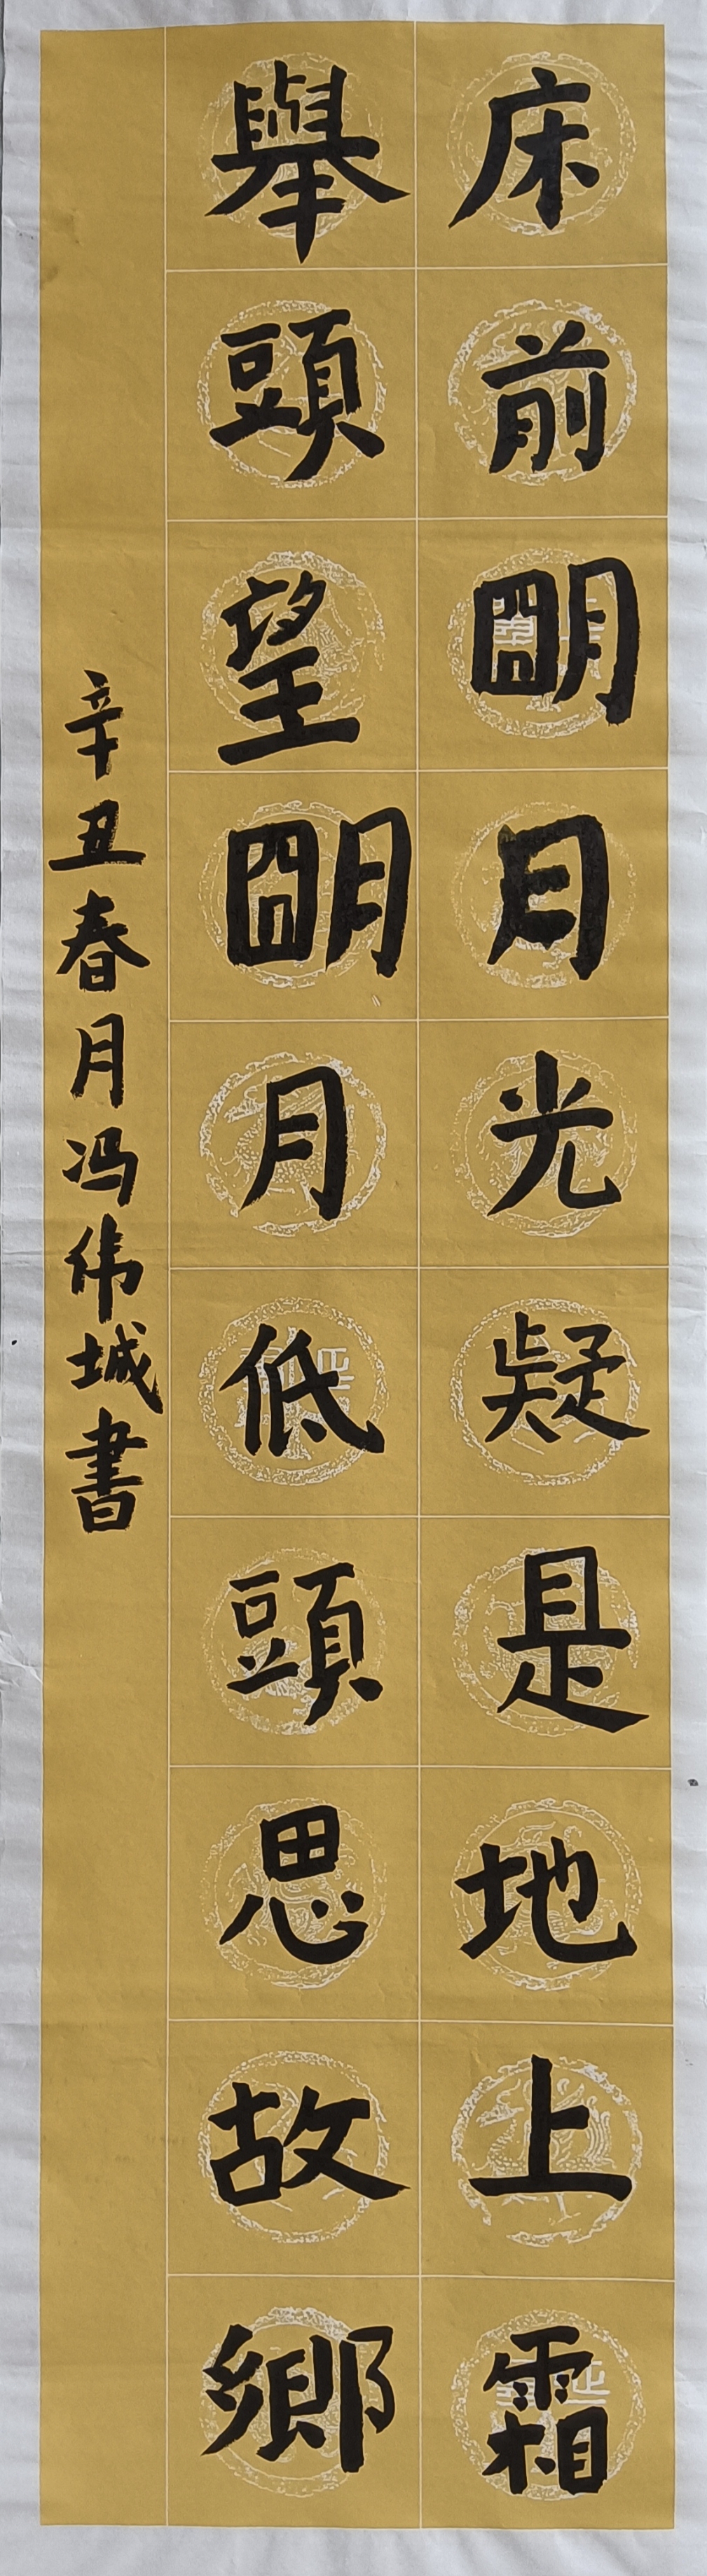 床前明月光疑是地上霜
舉頭望明月低頭思故鄉
辛丑春月冯伟城書